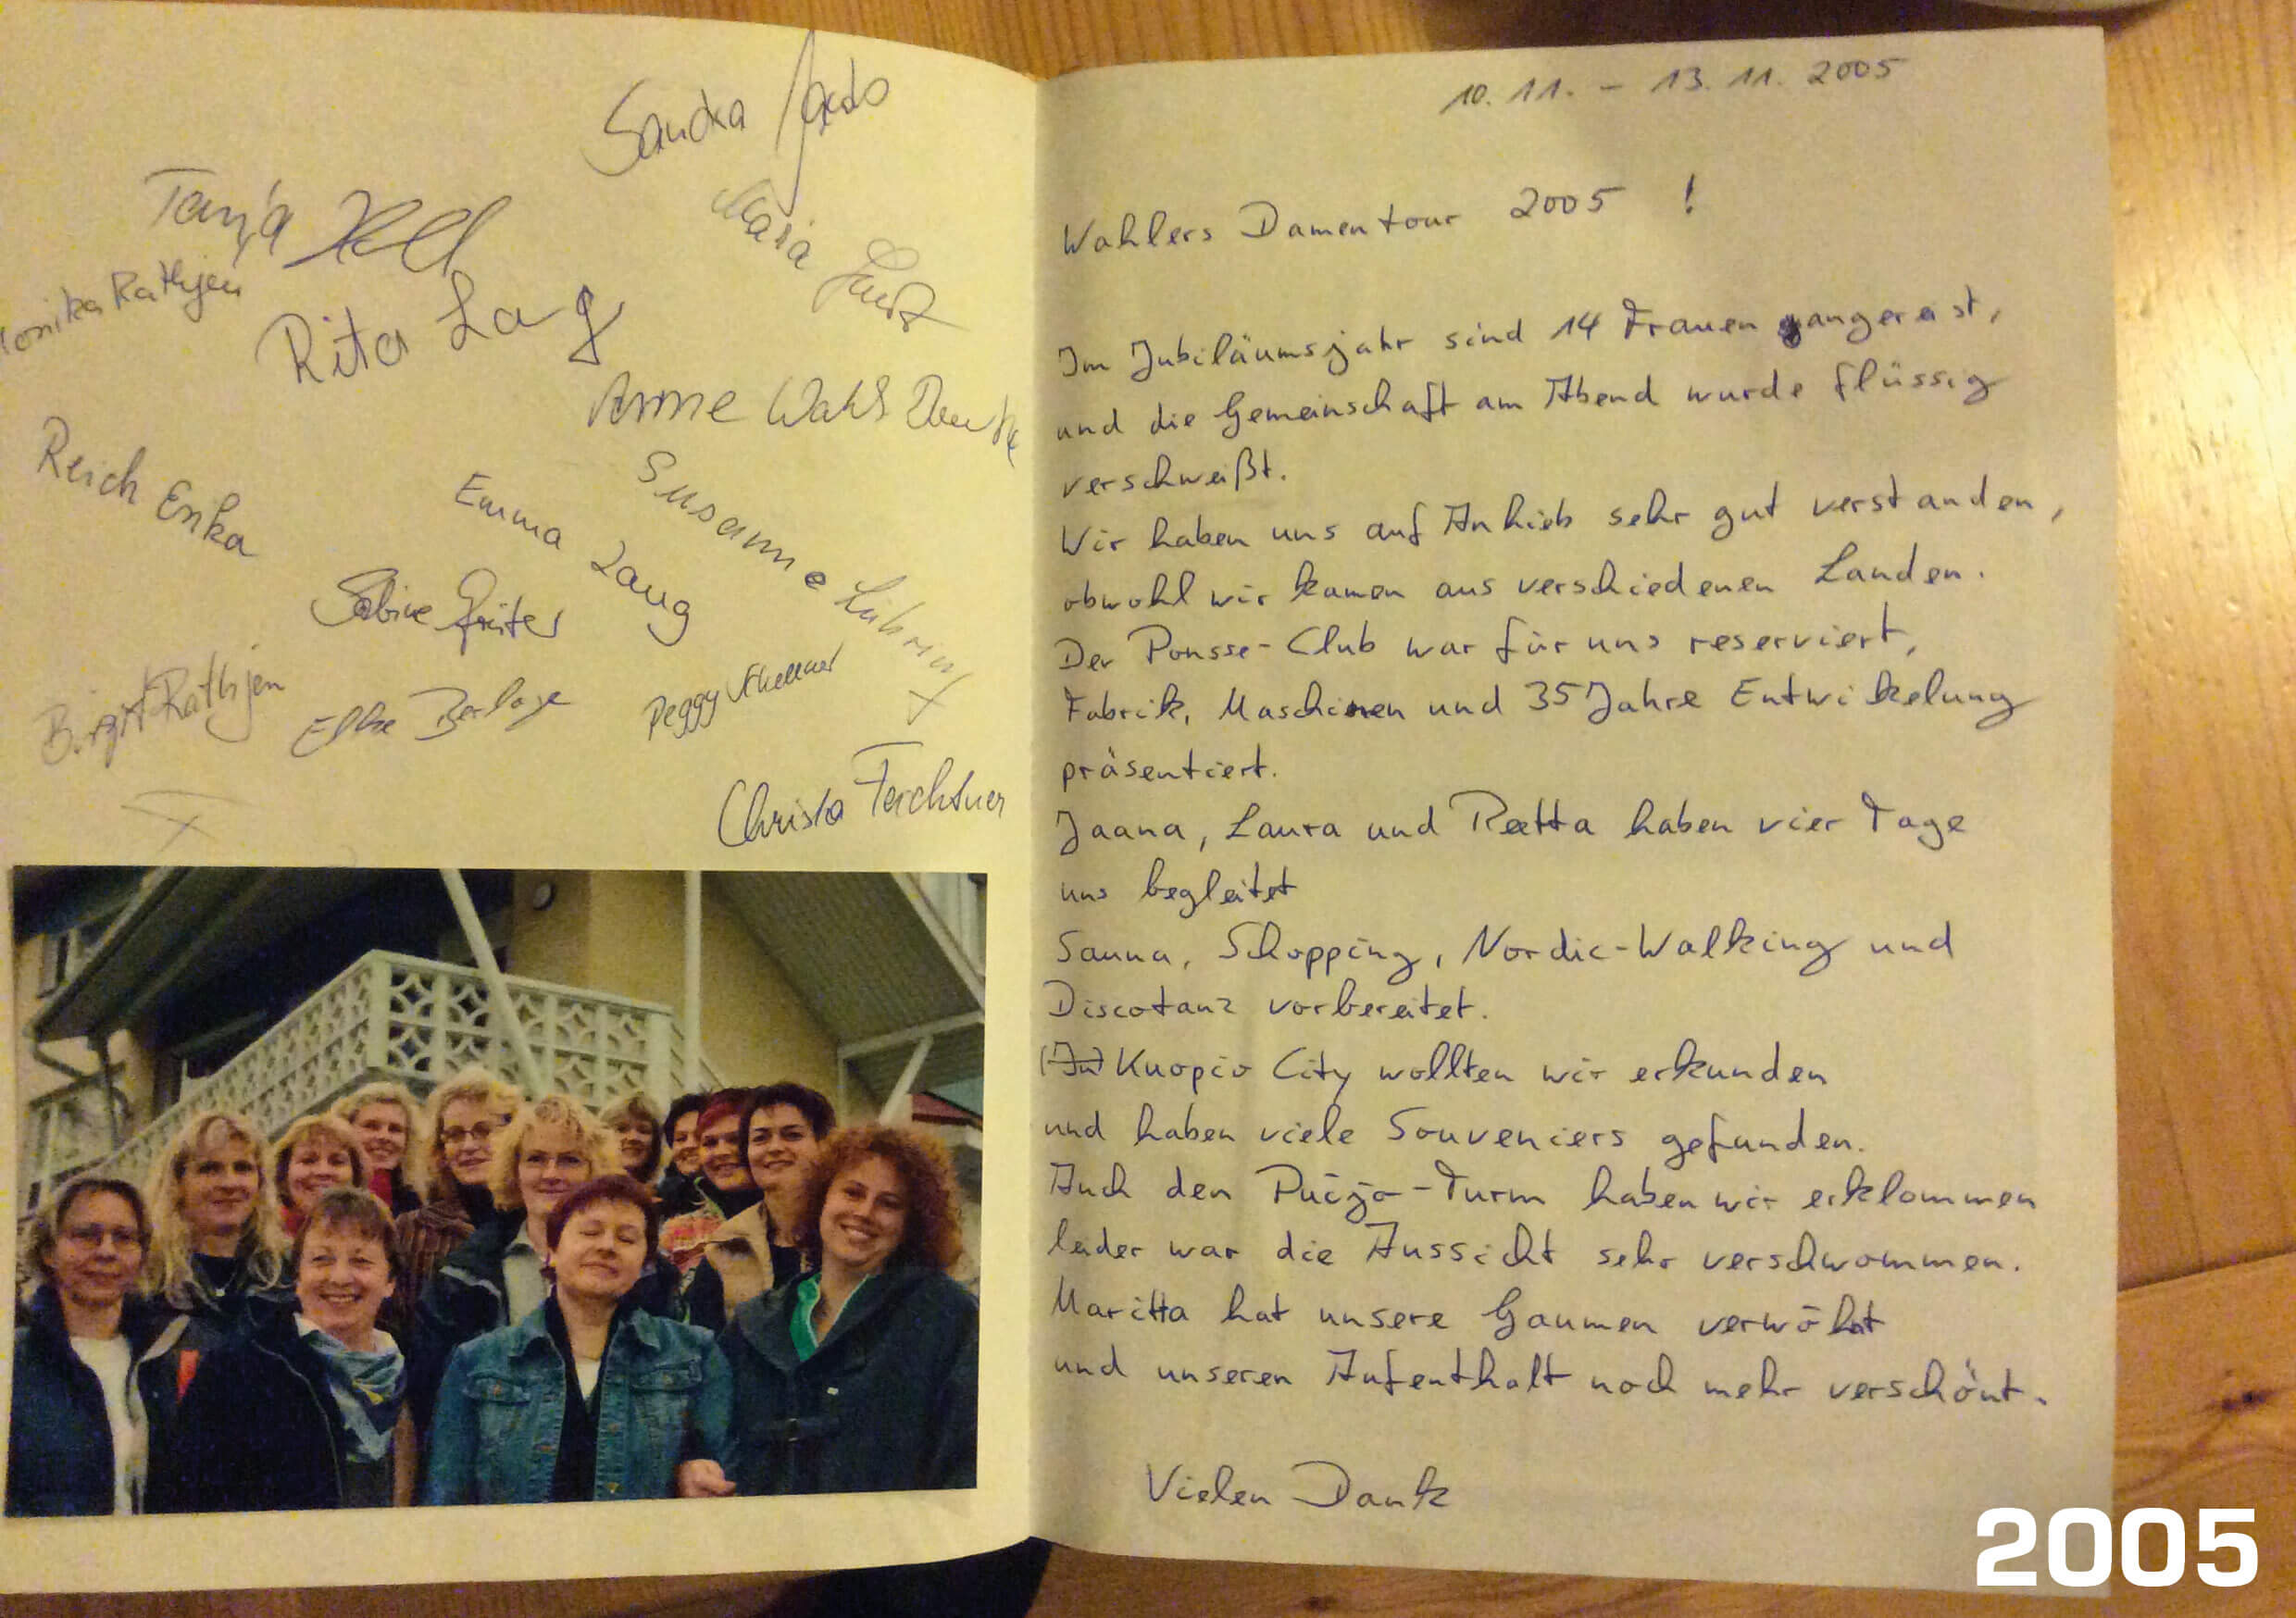 Sandra
Tanja
Maria
Rathjen
Rita Lang
Anne Wahl
Reich Erika
Emma Lang
Susanne
Sabine
Birgit Rathjen
Elke
Peggy
Christa
10.11. - 13.11. 2005
Wahlers Damentour 2005 !
Im Jubiläumsjahr sind 14 Frauen angereist,
und die Gemeinschaft am Abend wurde flüssig
verschweißt.
Wir haben uns auf Anhieb sehr gut verstanden,
obwohl wir kamen aus verschiedenen Landen.
Der Ponsse-Club war für uns reserviert,
Fabrik, Maschinen und 35 Jahre Entwikelung
präsentiert.
Jaana, Laura und Reetta haben vier Tage
uns begleitet
Sauna, Schopping, Nordic-Walking und
Discotanz vorbereitet.
(In) Kuopio City wollten wir erkunden
und haben viele Souveniers gefunden.
Auch den Puijo-Turm haben wir erklommen
leider war die Aussicht sehr verschwommen.
Maritta hat unsere Gaumen verwöhnt
und unseren Aufenthalt noch mehr verschönt.
Vielen Dank
2005